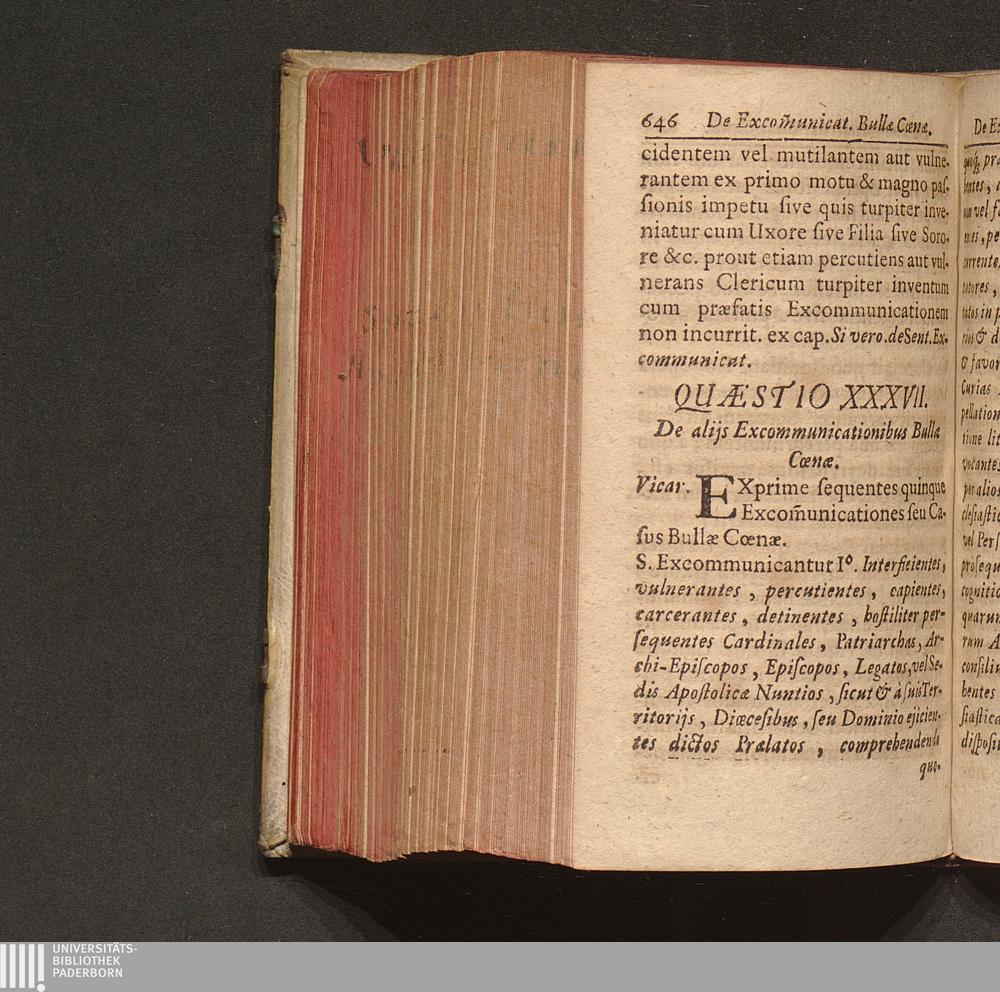 646 De Excom̃unicat. Bullæ Cœnæ.
cidentem vel mutilantem aut vulne-
rantem ex primo motu & magno paſ-
ſionis impetu ſive quis turpiter inve-
niatur cum Uxore ſive Filia ſive Soro-
re &c. prout etiam percutiens aut vul-
nerans Clericum turpiter inventum
cum præfatis Excommunicationem
non incurrit. ex cap. Si vero. de Sent. Ex-
communicat.
QUÆSTIO XXXVII.
De alijs Excommunicationibus Bullæ
Cœnæ.
Vicar. EXprime ſequentes quinque
Excom̃unicationes ſeu Ca-
ſus Bullæ Cœnæ.
S. Excommunicantur I°. Interficientes,
vulnerantes, percutientes, capientes,
carcerantes, detinentes, hoſtiliter per-
ſequentes Cardinales, Patriarchas, Ar-
chi-Epiſcopos, Epiſcopos, Legatos, vel Se-
dis Apoſtolicæ Nuntios, ſicut & à ſuis Ter-
ritorijs, Diœceſibus, ſeu Dominio ejicien-
tes dictos Prælatos, comprehendendo
quo-
De
vel
& d
& favor
Curias
tione lit
vocantes
per alios
vel Perſ
rum A
UNIVERSITÄTS-
BIBLIOTHEK
PADERBORN